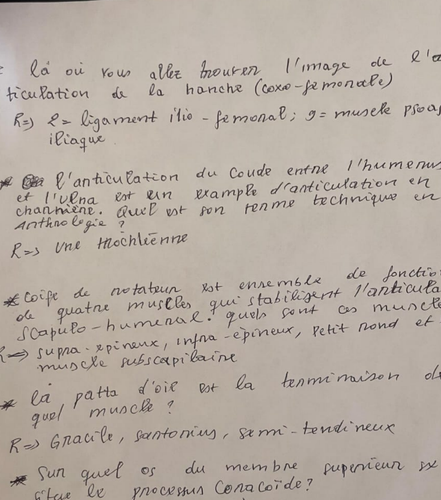 là où vous allez trouver l'image de l'a
ticulation de la hanche (coxo-femonale)
R⇒ 2= ligament ilio-femonal; 9= muscle psoas
iliaque
* l'anticulation du coude entre l'humenus
et l'ulna est un example d'anticulation en
channiene. Quel est son tenme technique en
Anthnologie ?
R⇒ Une tnochléenne
* Coife de notateur est ensemble de fonction
de quatre muscles qui stabilisent l'anticula
scapulo-humenal. quels sont ces muscle
R⇒ supra-épineux, infra-épineux, petit nond et
muscle subscapilaine
* La patta d'oie est la terminaison de
quel muscle ?
R⇒ Gracile, santonius, semi-tendineux
* Sun quel os du membre superieun se
situe le processus conacoïde ?